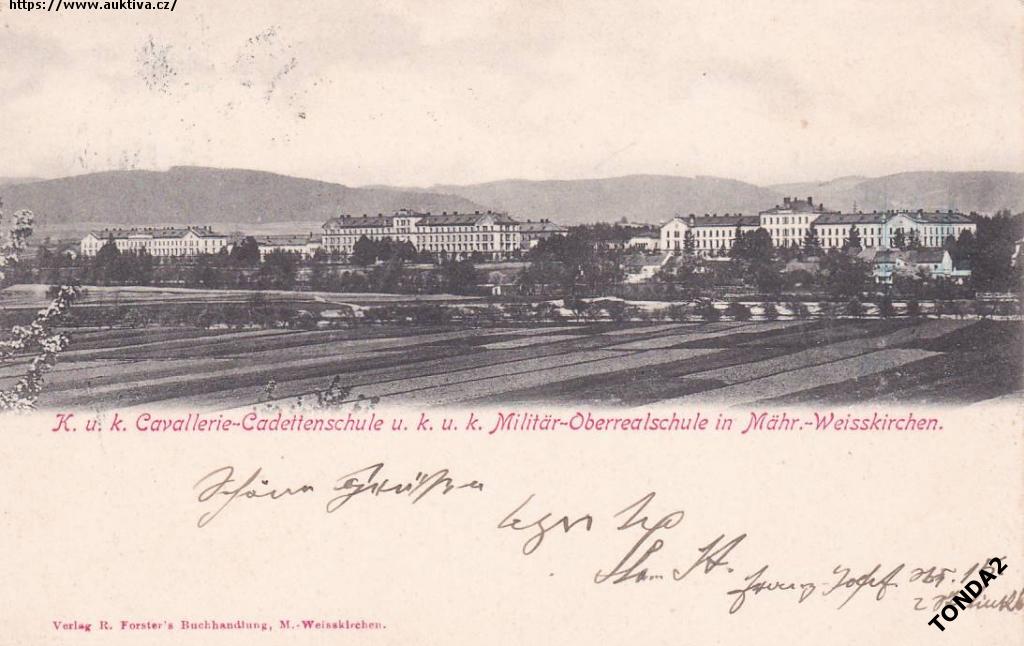 https://www.auktiva.cz/
K. u. k. Cavallerie-Cadettenschule u. k. u. k. Militär-Oberrealschule in Mähr.-Weisskirchen.
Schöne Grüße
Franz-Josef
TONDA2
Verlag R. Forster's Buchhandlung, M.-Weisskirchen.